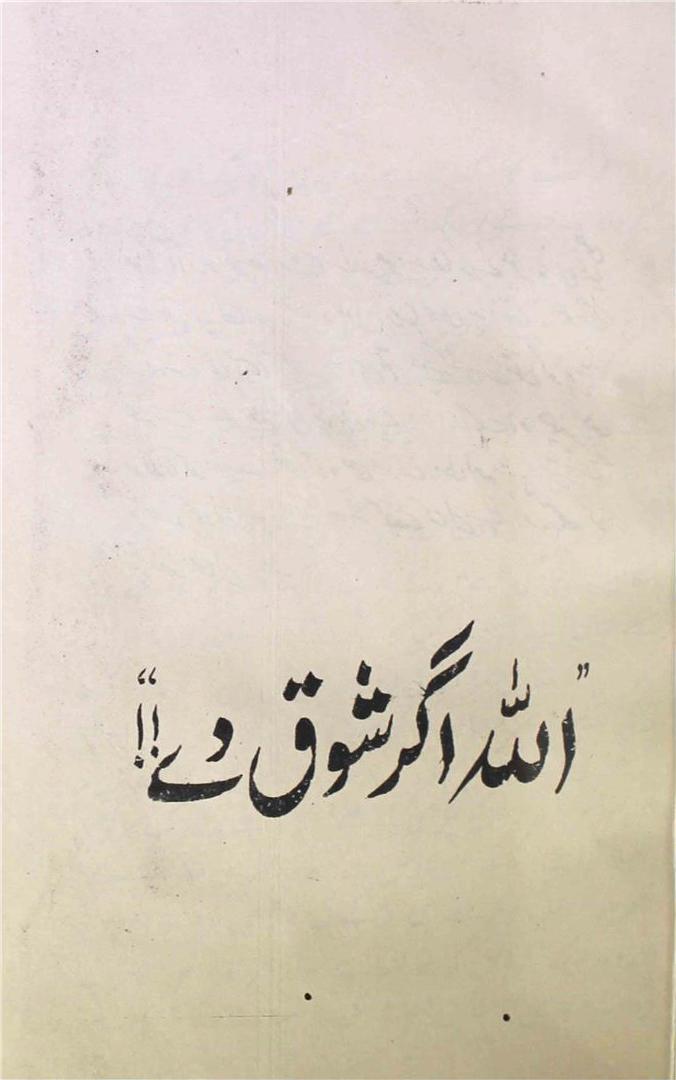 ”اللہ اگر شوق دے!!“